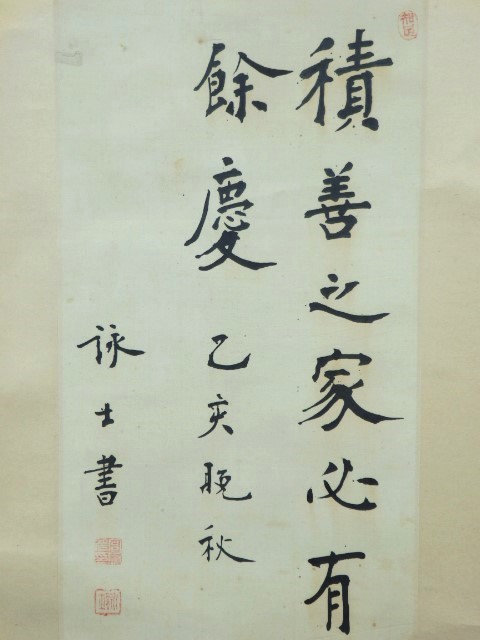 積善之家必有
餘慶 乙亥晚秋
詠士書